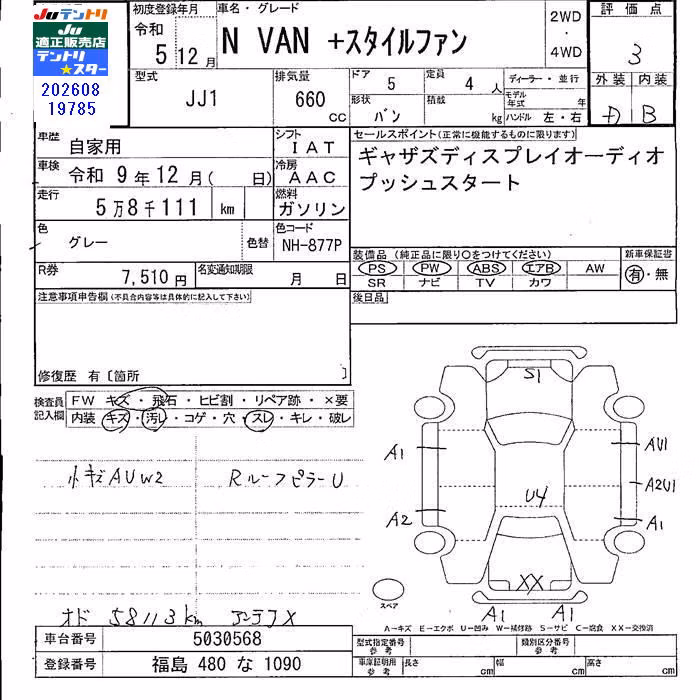 JUテントリ
JU
適正販売店
テントリ
★スター
202608
19785
初度登録年月
令和
5 12月
車名・グレード
N VAN +スタイルファン
2WD
・
4WD
評価点
3
外装 内装
D B
型式
JJ1
排気量
660
CC
ドア
5
定員
4 人
形状
バン
積載
kg
ディーラー・並行
モデル年式 年
ハンドル 左・右
車歴
自家用
シフト
IAT
車検
令和 9年12月( 日)
冷房
AAC
走行
5万8千111 km
燃料
ガソリン
色
グレー
色替
色コード
NH-877P
R券
7,510円
名変通知期限
月 日
セールスポイント(正常に機能するものに限ります)
ギャザズディスプレイオーディオ
プッシュスタート
装備品(純正品に限り〇をつけてください)
PS PW ABS エアB AW
SR ナビ TV カワ
新車保証書
有・無
後日品
注意事項申告欄(不具合内容等は具体的に記入して下さい)
修復歴 有〔箇所 〕
検査員
記入欄
FW キズ・飛石・ヒビ割・リペア跡・×要
内装 キズ・汚レ・コゲ・穴・スレ・キレ・破レ
小キズAUW2
RルーフピラーU
オド 58113km アンテナX
S1
A1
A2
U4
AU1
A2U1
A1
XX
A1
A1
スペア
A-キズ E-エクボ U-凹み W-補修跡 S-サビ C-腐食 XX-交換済
車台番号
5030568
登録番号
福島 480 な 1090
型式指定番号
参考
類別区分番号
参考
車庫証明用
参考
長さ cm
幅 cm
高さ cm